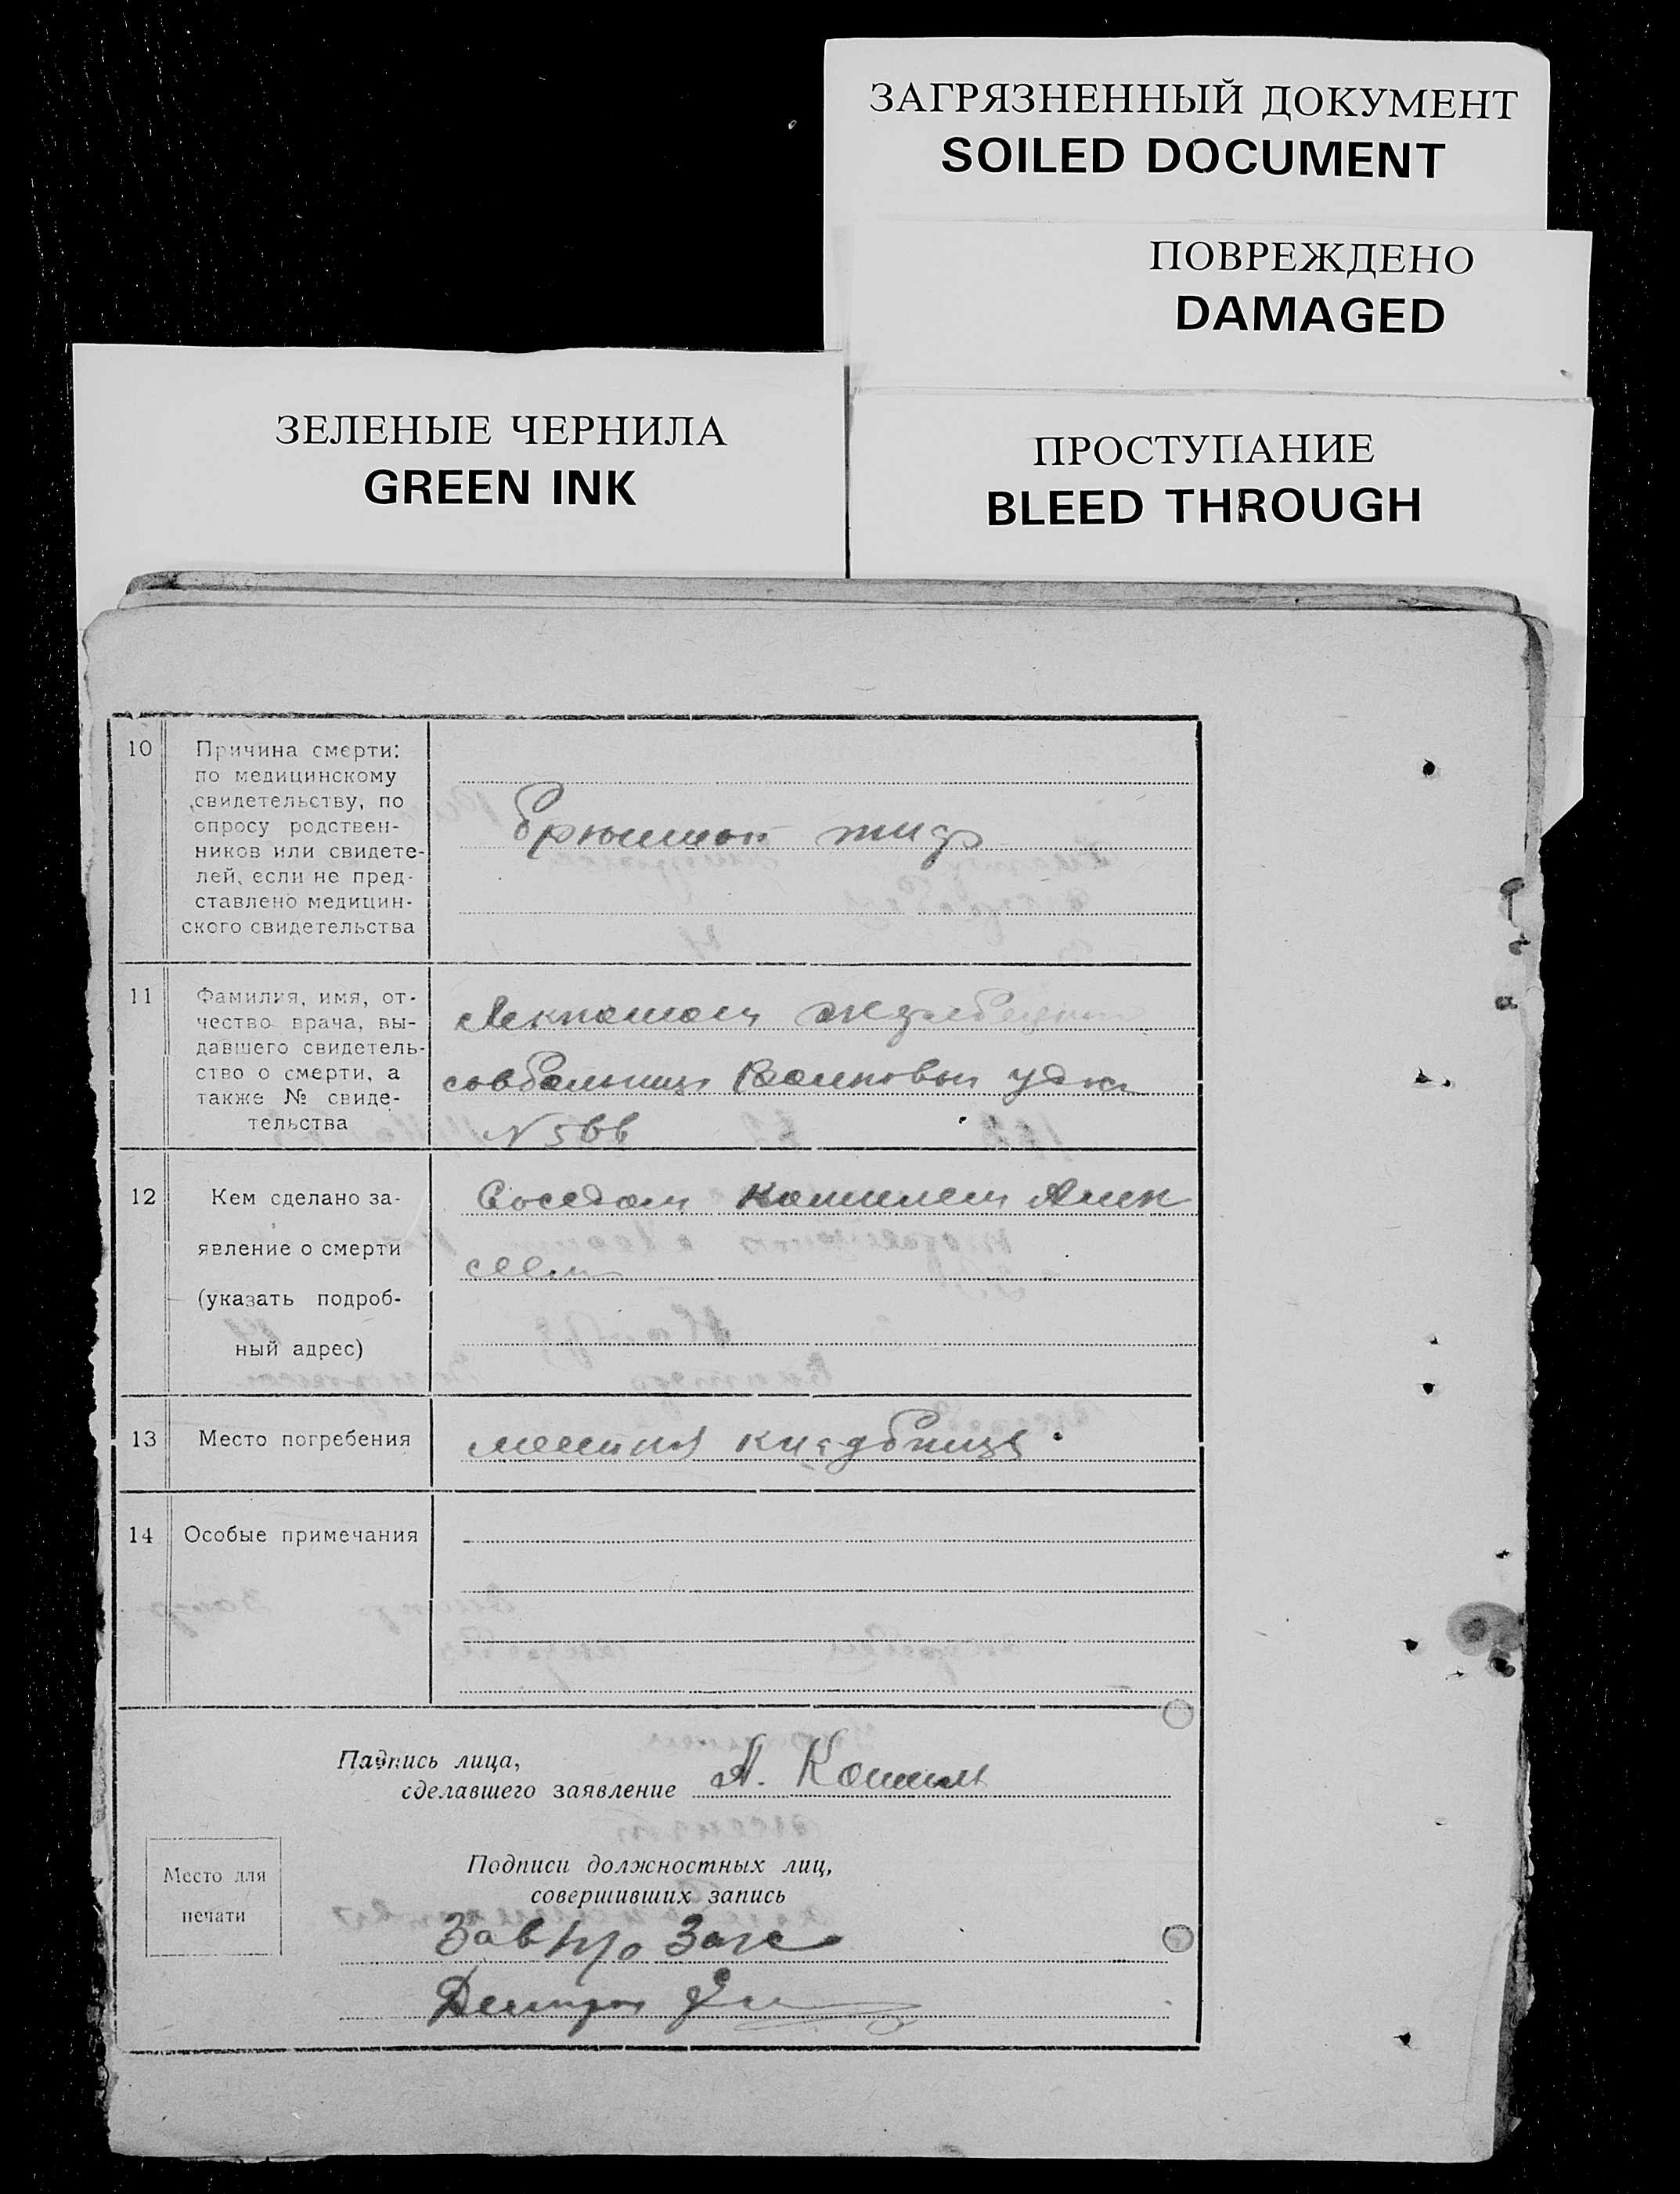 ЗАГРЯЗНЕННЫЙ ДОКУМЕНТ
SOILED DOCUMENT
ПОВРЕЖДЕНО
DAMAGED
ЗЕЛЕНЫЕ ЧЕРНИЛА
GREEN INK
ПРОСТУПАНИЕ
BLEED THROUGH
10
Причина смерти:
по медицинскому
свидетельству, по
опросу родствен-
ников или свидете-
лей, если не пред-
ставлено медицин-
ского свидетельства
брюшной тиф
11
Фамилия, имя, от-
чество врача, вы-
давшего свидетель-
ство о смерти, а
также № свиде-
тельства
N 566
12
Кем сделано за-
явление о смерти
(указать подроб-
ный адрес)
Соседом
13
Место погребения
14
Особые примечания
Падпись лица,
сделавшего заявление А.
Место для
печати
Подписи должностных лиц,
совершивших запись
Зав Загс